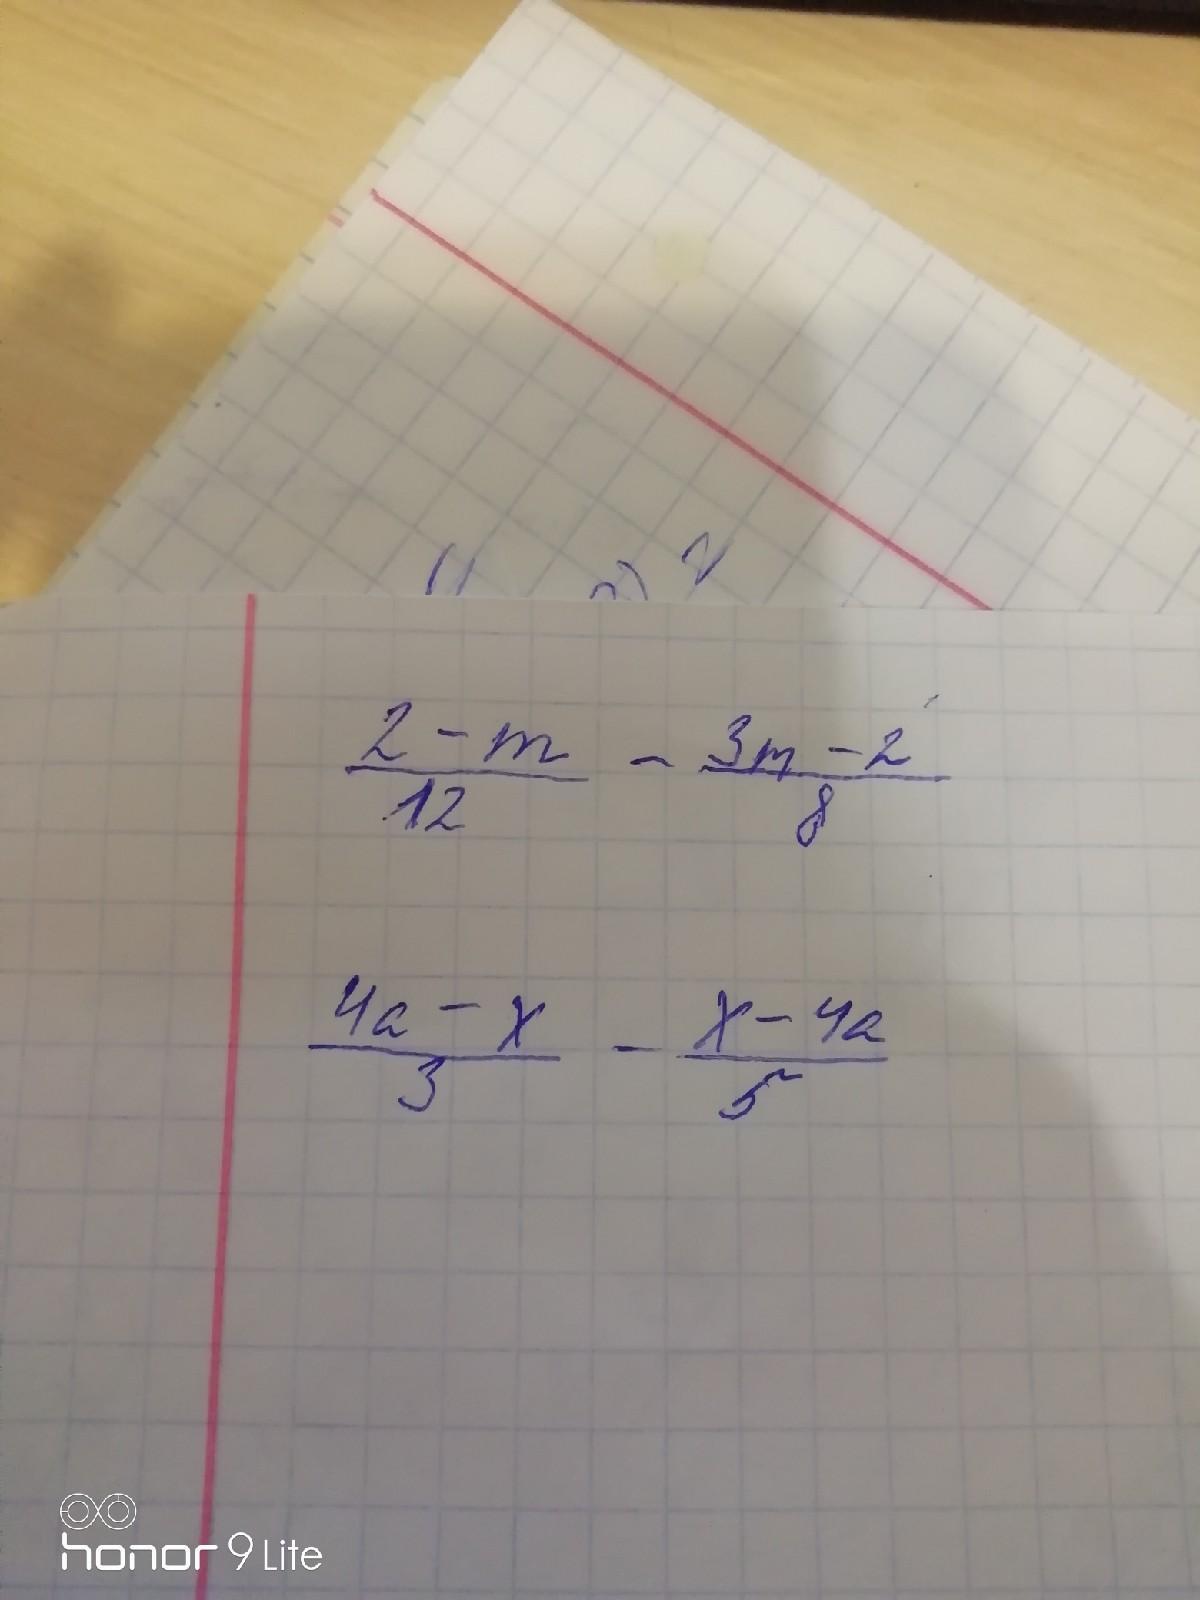 2 - m / 12 - 3m - 2 / 8
4a - x / 3 - x - 4a / 5
honor 9 Lite